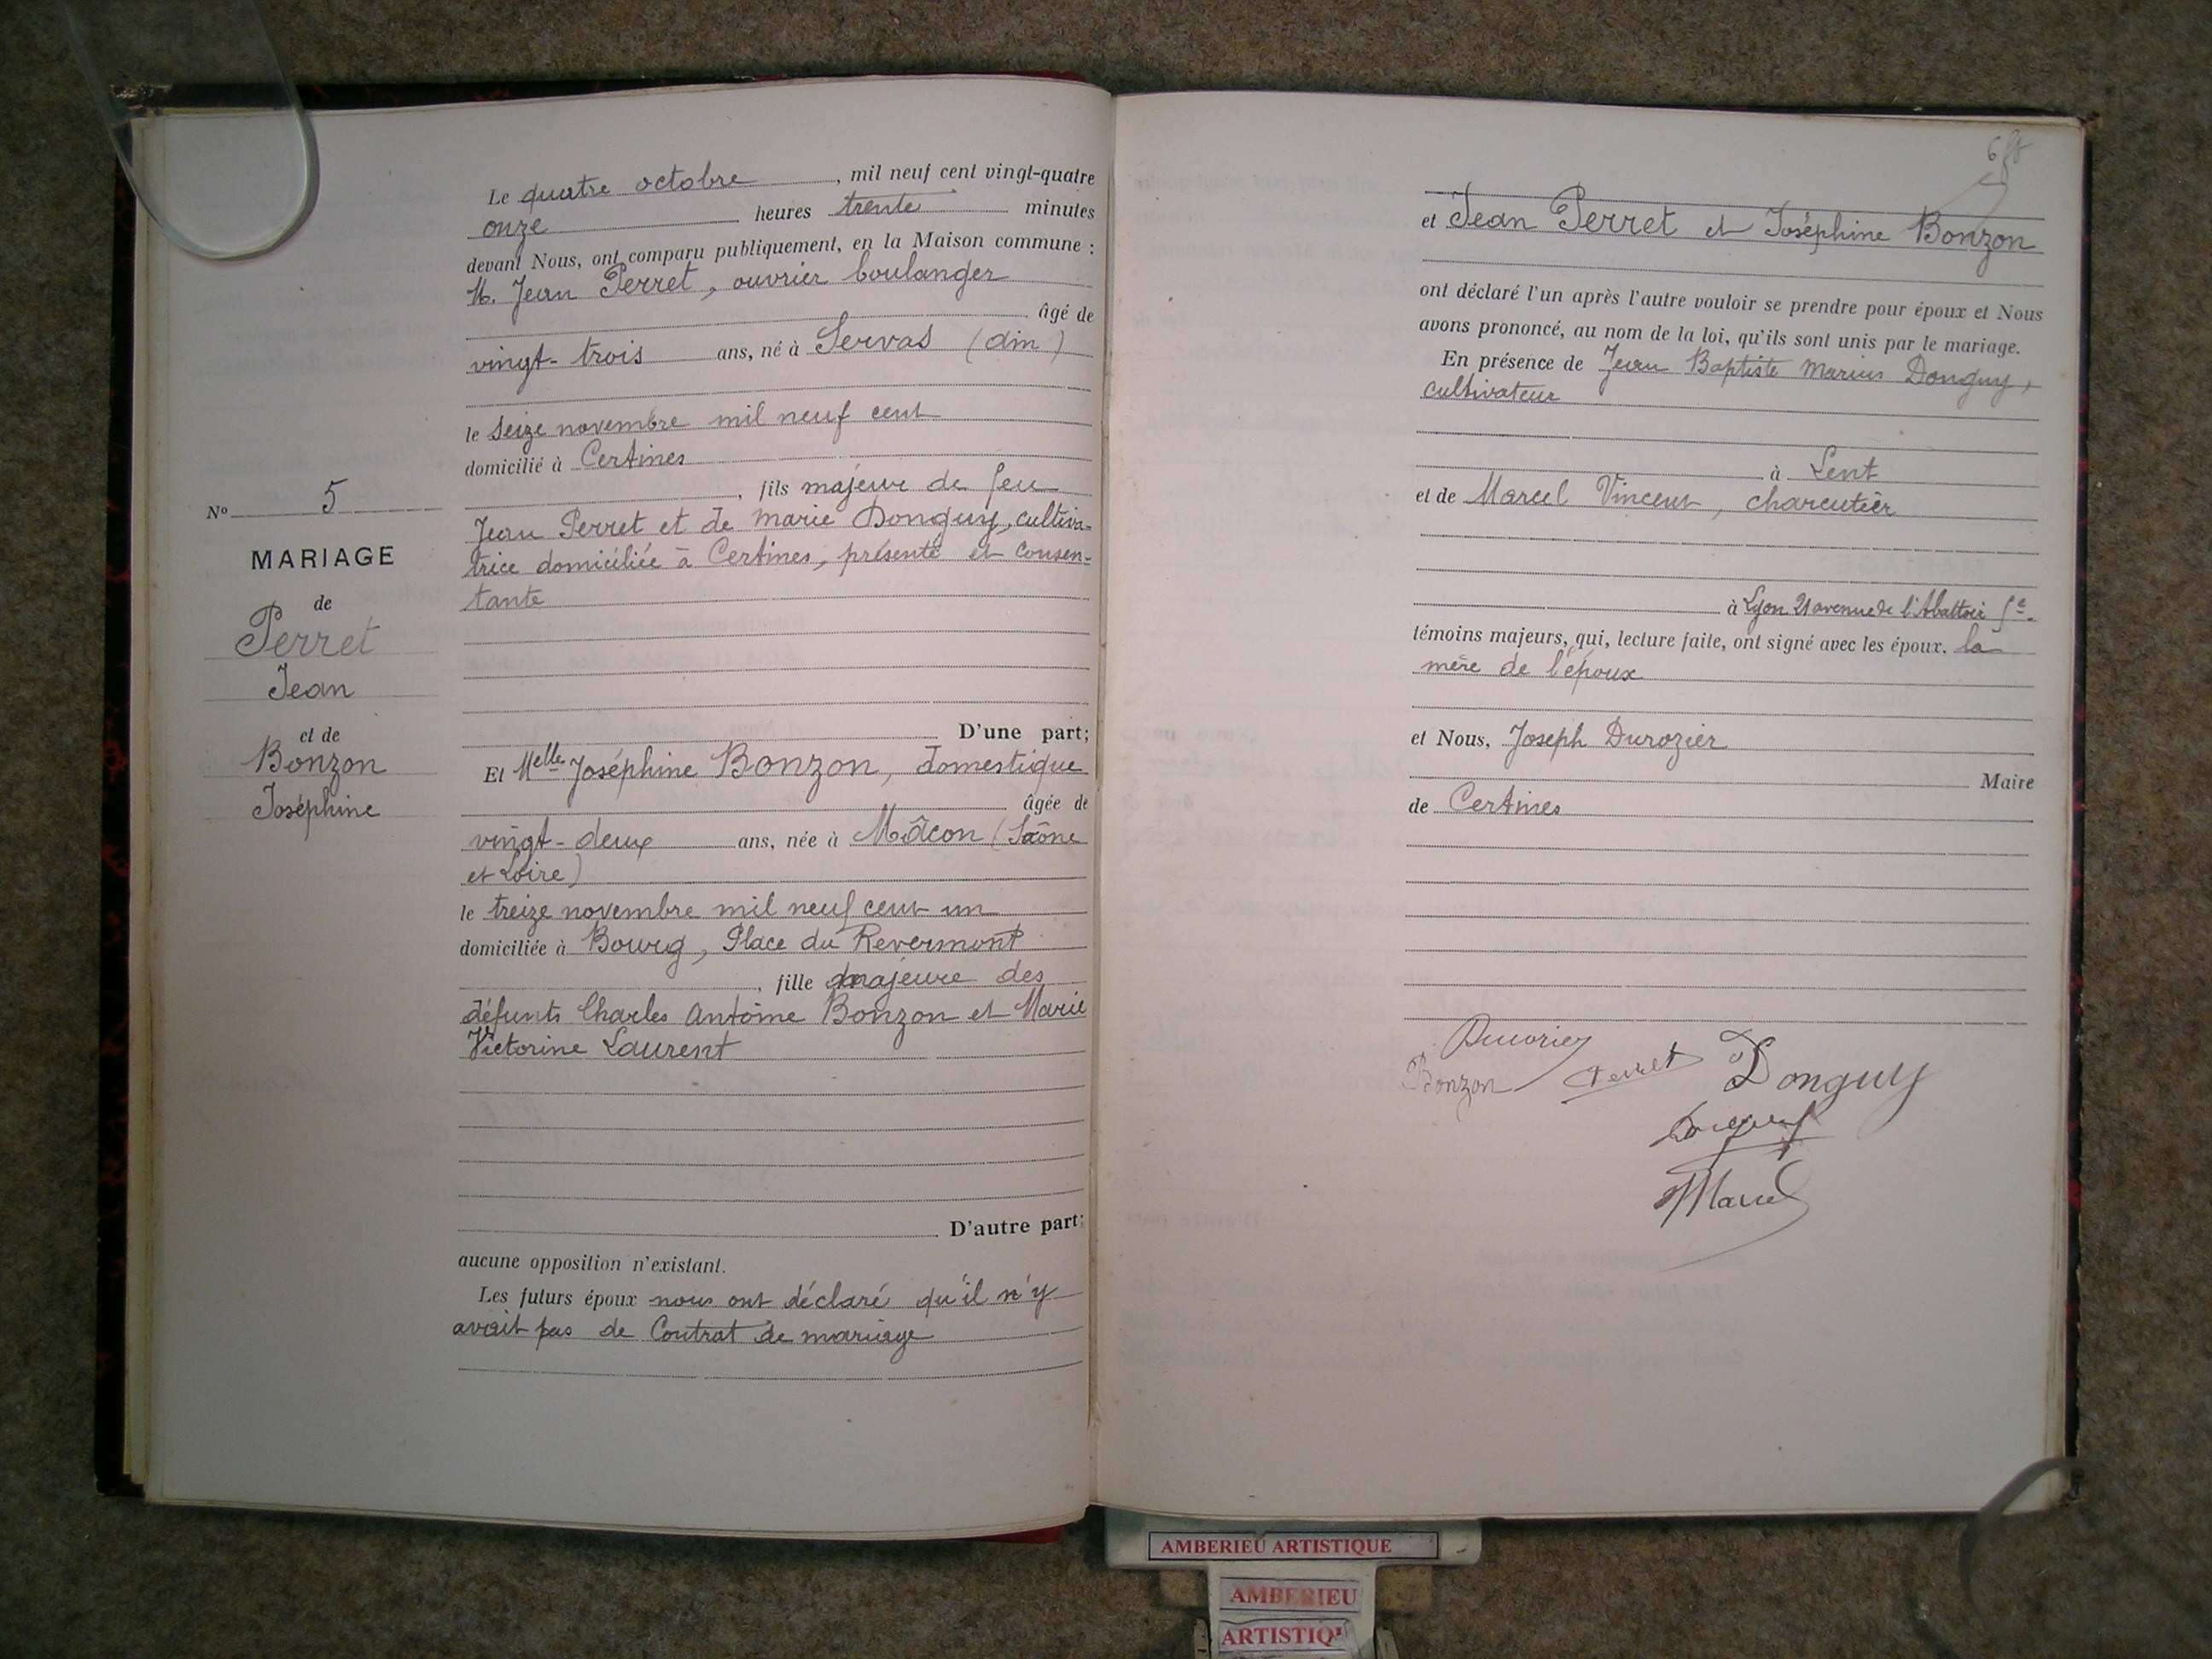 Le quatre octobre, mil neuf cent vingt-quatre
onze heures trente minutes
devant Nous, ont comparu publiquement, en la Maison commune :
M. Jean Perret, ouvrier boulanger
âgé de
vingt-trois ans, né à Servas (Ain)
le seize novembre mil neuf cent
domicilié à Certines
, fils majeur de feu
Jean Perret et de Marie Donguy, cultiva-
trice domiciliée à Certines, présente et consen-
tante
D'une part;
Et Melle Joséphine Bonzon, domestique
âgée de
vingt-deux ans, née à Mâcon (Saône
et Loire)
le treize novembre mil neuf cent un
domiciliée à Bourg, Place du Revermont
, fille majeure des
défunts Charles Antoine Bonzon et Marie
Victorine Laurent
D'autre part;
aucune opposition n'existant.
Les futurs époux nous ont déclaré qu'il n'y
avait pas de Contrat de mariage
No 5
MARIAGE
de
Perret
Jean
et de
Bonzon
Joséphine
et Jean Perret et Joséphine Bonzon
ont déclaré l'un après l'autre vouloir se prendre pour époux et Nous
avons prononcé, au nom de la loi, qu'ils sont unis par le mariage.
En présence de Jean Baptiste Marius Donguy,
cultivateur
à Lent
et de Marcel Vincent, charcutier
à Lyon 21 avenue de l'Abattoir
témoins majeurs, qui, lecture faite, ont signé avec les époux. la
mère de l'époux
et Nous, Joseph Durozier
Maire
de Certines
Durozier
Bonzon Perret Donguy
Donguy
Marcel
AMBERIEU ARTISTIQUE
AMBERIEU
ARTISTIQ